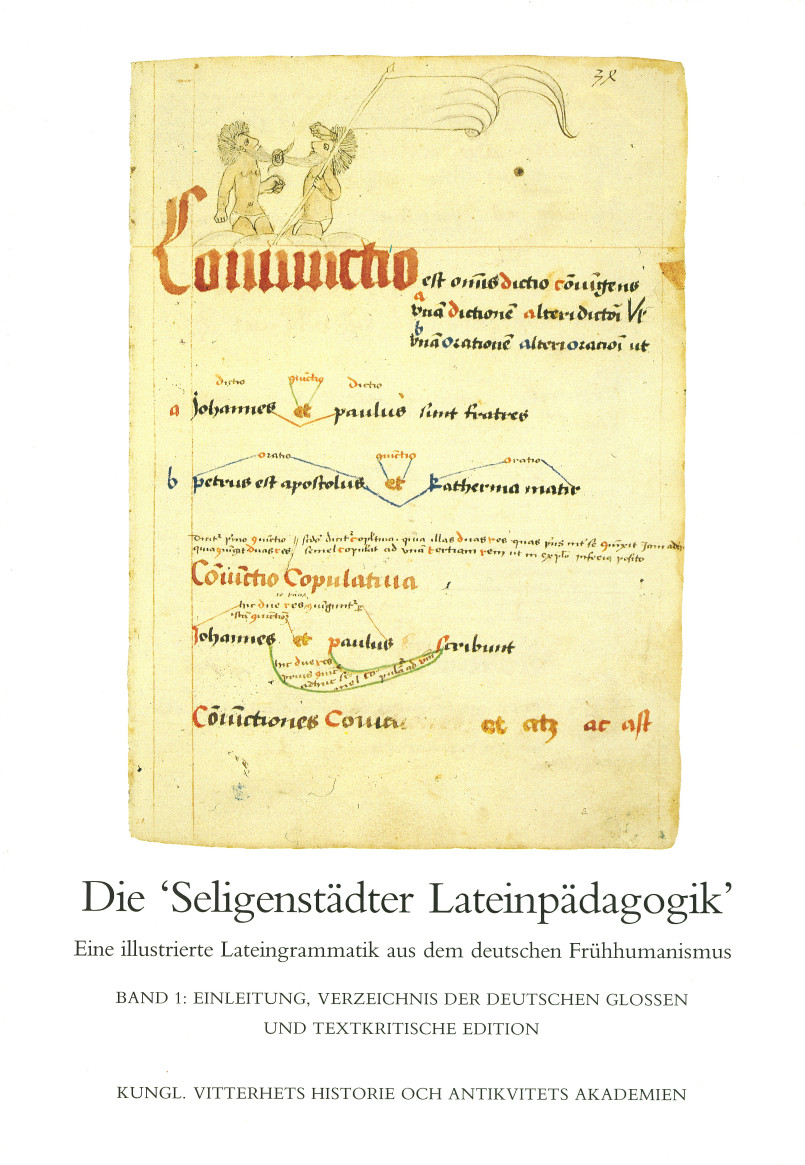 38
Coniunctio est om̄is dictio cōiūgens
a vnā dictionē alteri dictōi Vt
b vnā orationē alteri oracioī ut
dictio quīctio dictio
a Johannes et paulus sunt fratres
oratio quīctio oratio
b petrus est apostolus et katherina matir
Cōiūctio Copulatiua
hic due res
Johannes et paulus scribunt
hic due res
Cōiūctiones et atq ac ast
Die ‘Seligenstädter Lateinpädagogik’
Eine illustrierte Lateingrammatik aus dem deutschen Frühhumanismus
BAND 1: EINLEITUNG, VERZEICHNIS DER DEUTSCHEN GLOSSEN
UND TEXTKRITISCHE EDITION
KUNGL. VITTERHETS HISTORIE OCH ANTIKVITETS AKADEMIEN